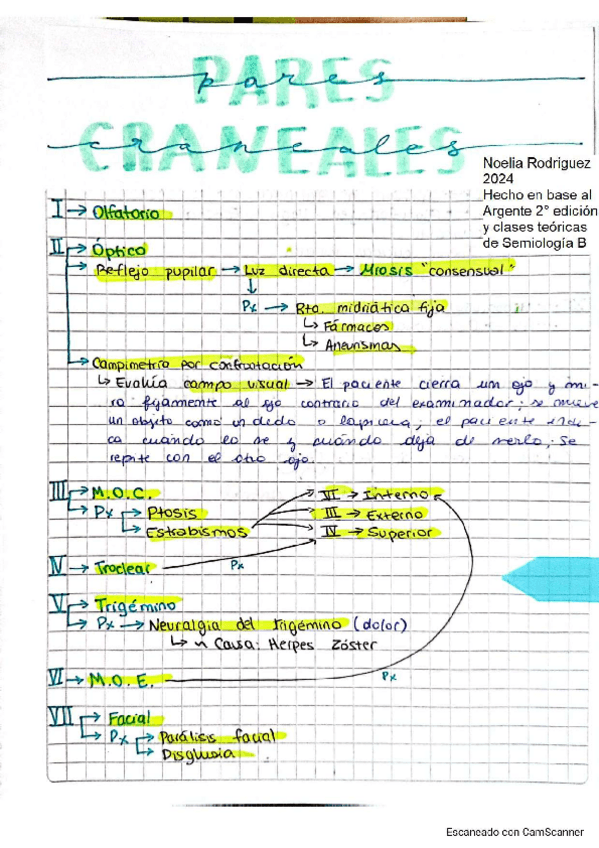 PARES
pares
CRANEALES
craneales
Noelia Rodriguez
2024
Hecho en base al
Argente 2° edición
y clases teóricas
de Semiología B
I → Olfatorio
II → Óptico
→ Reflejo pupilar → Luz directa → Miosis "consensual"
↓
Px → Rta. midriática fija
↳ Fármacos
↳ Aneurismas
→ Campimetría por confrontación
↳ Evalúa campo visual → El paciente cierra un ojo y mi-
ra fijamente al ojo contrario del examinador; se mueve
un objeto como un dedo o lapicera; el paciente indi-
ca cuándo lo ve y cuándo deja de verlo; se
repite con el otro ojo.
III → M.O.C.
→ Px → Ptosis
→ Estrabismos
VI → Interno
III → Externo
IV → Superior
IV → Troclear Px
V → Trigémino
→ Px → Neuralgia del trigémino (dolor)
↳ Causa: Herpes Zóster
VI → M.O.E. Px
VII → Facial
→ Px → Parálisis facial
→ Disgeusia
Escaneado con CamScanner